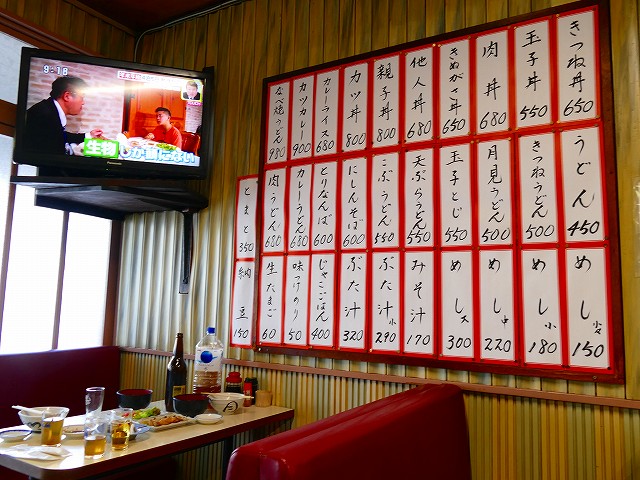 9:18
生物しか観てない
きつね丼 650
玉子丼 550
肉丼 680
きぬがさ丼 650
他人丼 680
親子丼 800
カツ丼 800
カレーライス 680
カツカレー 900
なべ焼うどん 980
うどん 450
きつねうどん 500
月見うどん 500
玉子とじ 550
天ぷらうどん 550
こぶうどん 550
にしんそば 600
とりなんば 600
カレーうどん 680
肉うどん 680
とまと 350
めし 小々 150
めし 小 180
めし 中 220
めし 大 300
みそ汁 170
ぶた汁 小 290
ぶた汁 320
じゃこごはん 400
味つけのり 50
生たまご 60
納豆 150